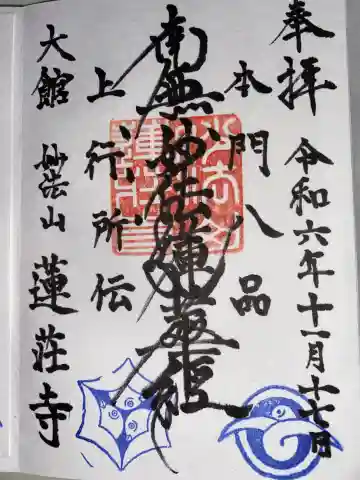 奉拝
令和六年十一月十七日
本門八品
南無妙法蓮華経
上行所伝
大館 妙法山 蓮荘寺